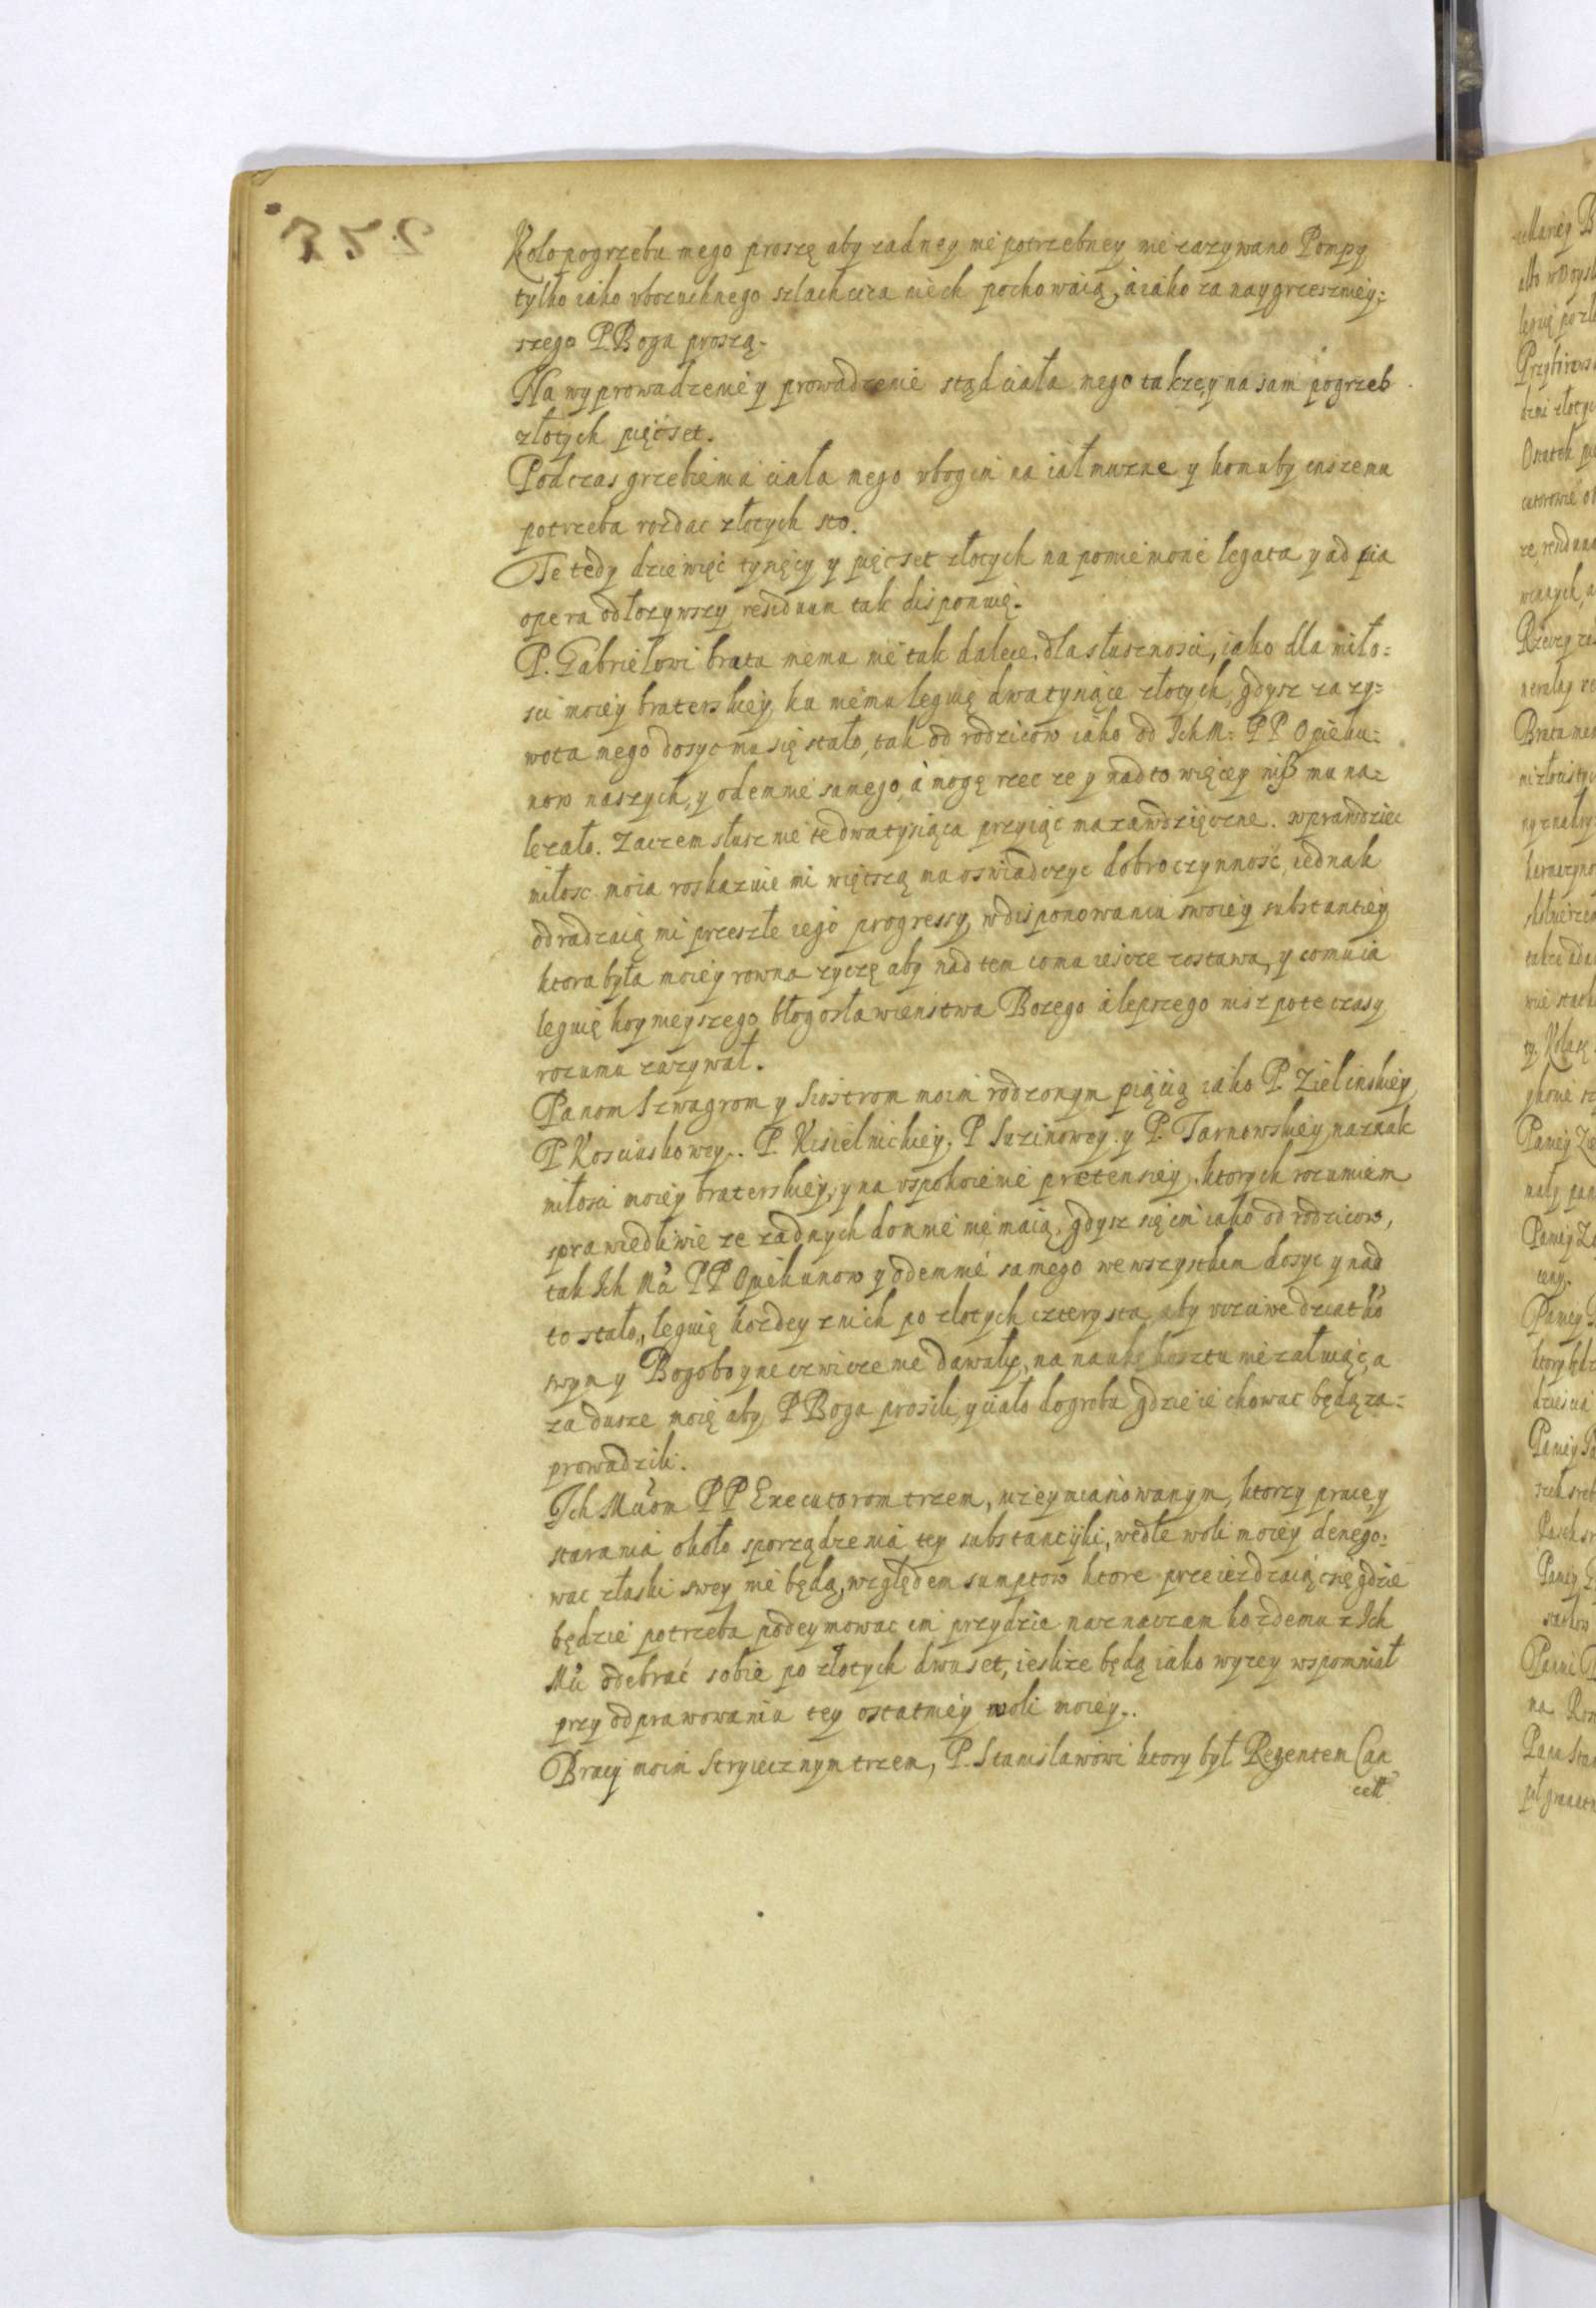 Koło pogrzebu mego proszę aby zadney nie potrzebney nie zazywano Pompy
tylko iako vbozuchnego szlachcica niech pochowaią, á iako za naygrzeszniey:
szego P. Boga proszą.
Na wyprowadzenie y prowadzenie stąd ciała mego także, y na sam pogrzeb
złotych pięćset.
Podczas grzebienia ciała mego vbogim na iałmuzne y komuby inszemu
potrzeba rozdac złotych sto.
Te tedy dziewięć tysięcy y pięcset złotych na pomienione legata y ad pia
opera odłozywszy, residuum tak disponuię.
P. Gabrielowi bratu memu nie tak dalece, dla słusznosci, iako dla miło:
sci moiey braterskiey, ku niemu leguię dwa tysiące złotych, gdysz za zy:
wota mego dosyc mu się stało, tak od rodzicow iako od Ich M: PP Opieku:
now naszych, y odemnie samego, á mogę rzec ze y nad to więcey niß mu na:
lezało. Zaczem słusznie te dwa tysiąca przyiąc ma zawdzięczne. wprawdziec
miłosc moia roskazuie mi więtszą mu oswiadczyc dobroczynność, iednak
odradzaią mi przeszłe iego progressy, w disponowaniu swoiey substantiey
ktora była moiey rowna zyczę aby nad tem co ma iescze zostawa, y co mu ia
leguię hoynieyszego błogosławienstwa Bozego á lepszego nisz po te czasy
rozumu zazywał.
Panom Szwagrom y Siostrom moim rodzonym piącią iako P. Zielinskiey
P Kosciuskowey. P. Kisielnickiey. P Suzinowey. y P. Tarnowskiey na znak
miłosci moiey braterskiey, y na vspokoienie pretensiey, ktorych rozumiem
sprawiedliwie ze zadnych do mnie nie maią, gdysz się im iako od rodzicow,
tak Ich Mů PP Opiekunow y odemnie samego we wszystkim dosyc y nad
to stało, leguię kozdey z nich po złotych cztery sta, aby vczciwe dziatkom
swym y Bogoboyne cwiczenie dawały, na naukę kosztu nie załuiąc, a
za dusze moię aby P Boga prosili, y ciało do grobu gdzie ie chowac będą za:
prowadzili.
Ich Mciom PP Executorom trzem, nizey mianowanym, ktorzy pracey
starania około sporządzenia tey substancijki, wedle woli moiey denego:
wac z łaski swey nie będą, względem sumptow ktore przeiezdzaiąc się gdzie
będzie potrzeba podeymowac im przydzie naznaczam kozdemu z Ich
Mů odebrać sobie po złotych dwuset, ieslize będą iako wyzey wspomniał
przy odprawowaniu tey ostatniey woli moiey.
Bracy moim Stryiecznym trzem, P. Stanisławowi ktory był Regentem Can
cell